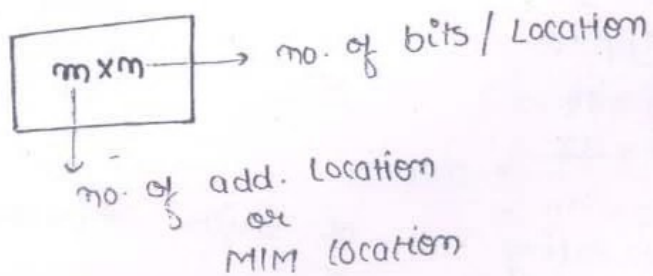 m x n → no. of bits / Location
no. of add. Location
or
MIM Location